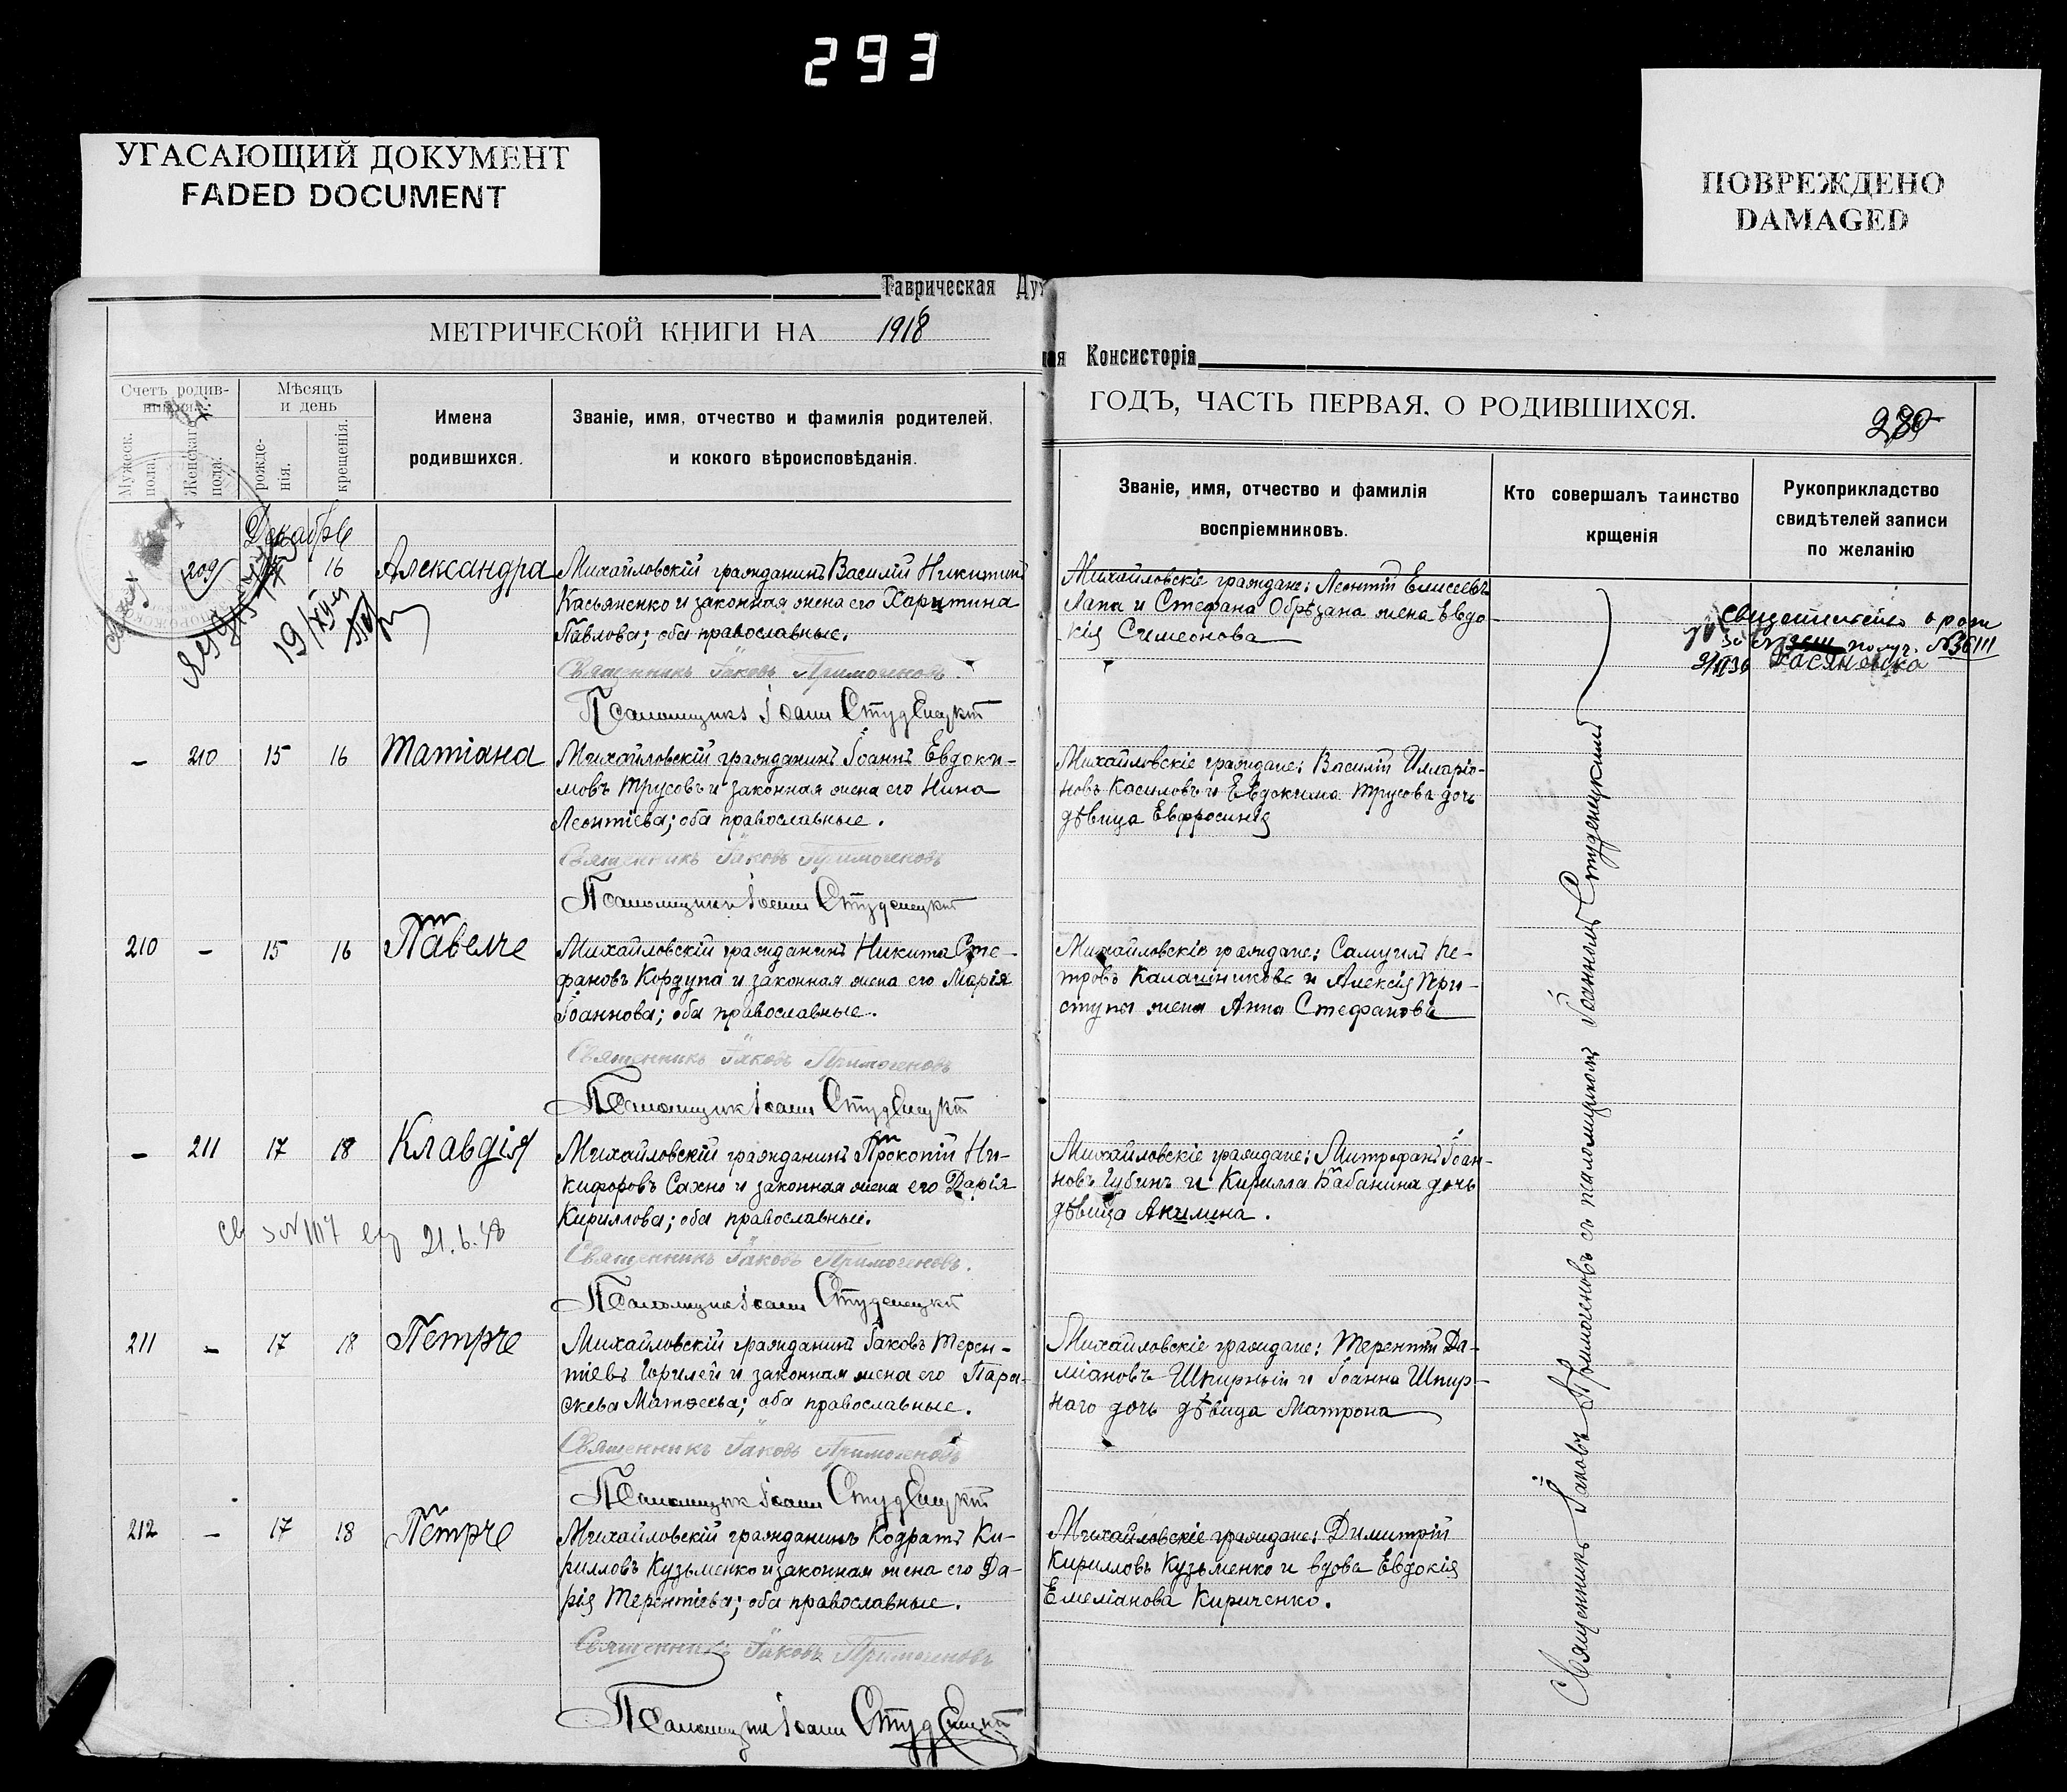 293
УГАСАЮЩИЙ ДОКУМЕНТ
FADED DOCUMENT
ПОВРЕЖДЕНО
DAMAGED
Таврическая Дух
ная Консисторія
МЕТРИЧЕСКОЙ КНИГИ НА 1918
ГОДЪ, ЧАСТЬ ПЕРВАЯ, О РОДИВШИХСЯ.
Счетъ родив-
Мужеск. пола.
Женскаго пола.
Мѣсяцъ
и день
рожде-
нія.
крещенія.
Имена
родившихся.
Званіе, имя, отчество и фамилія родителей,
и кокого вѣроисповѣданія.
Званіе, имя, отчество и фамилія
воспріемниковъ.
Кто совершалъ таинство
крщенія
Рукоприкладство
свидѣтелей записи
по желанію
Декабрь
209 16 Александра
Михайловскій гражданинъ Василій Никитинъ
Касьяненко и законная жена его Харитина
Павлова; оба православные.
Священникъ Іаковъ Примогеновъ.
Псаломщикъ Іоаннъ Студенецкій
Михайловскіе граждане: Леонтій Елисеевъ
Лапа и Стефана Обрѣзана жена Евдо-
кія Симеонова
№ 36111
– 210 15 16 Татіана
Михайловскій гражданинъ Іоаннъ Евдоки-
мовъ Трусовъ и законная жена его Нина
Леонтіева; оба православные.
Священникъ Іаковъ Примогеновъ
Псаломщикъ Іоаннъ Студенецкій
Михайловскіе граждане: Василій Иларіо-
новъ Касиловъ и Евдокима Трусова дочь
дѣвица Евфросинія
210 – 15 16 Павелъ
Михайловскій гражданинъ Никита Сте-
фановъ Кордупа и законная жена его Марія
Іоаннова; оба православные.
Священникъ Іаковъ Примогеновъ
Псаломщикъ Іоаннъ Студенецкій
Михайловскіе граждане: Самуилъ Пе-
тровъ Калашниковъ и Алексія При-
ступы жена Анна Стефанова
– 211 17 18 Клавдія
Михайловскій гражданинъ Прокопій Ни-
кифоровъ Сахно и законная жена его Дарія
Кириллова; оба православные.
21.6.48
Священникъ Іаковъ Примогеновъ.
Псаломщикъ Іоаннъ Студенецкій
Михайловскіе граждане: Митрофанъ Іоан-
новъ Губинъ и Кирилла Бабанина дочь
дѣвица Акилина.
211 – 17 18 Петръ
Михайловскій гражданинъ Іаковъ Терен-
тіевъ и законная жена его Пара-
скева Матѳеева; оба православные.
Священникъ Іаковъ Примогеновъ
Псаломщикъ Іоаннъ Студенецкій
Михайловскіе граждане: Терентій Да-
міановъ Шпирный и Іоанна Шпир-
наго дочь дѣвица Матрона
212 – 17 18 Петръ
Михайловскій гражданинъ Кодратъ Ки-
рилловъ Кузьменко и законная жена его Да-
рія Терентіева; оба православные.
Священникъ Іаковъ Примогеновъ
Псаломщикъ Іоаннъ Студенецкій
Михайловскіе граждане: Димитрій
Кирилловъ Кузьменко и вдова Евдокія
Емеліанова Кириченко.
Священникъ Іаковъ Примогеновъ съ псаломщикомъ Іоанномъ Студенецкимъ